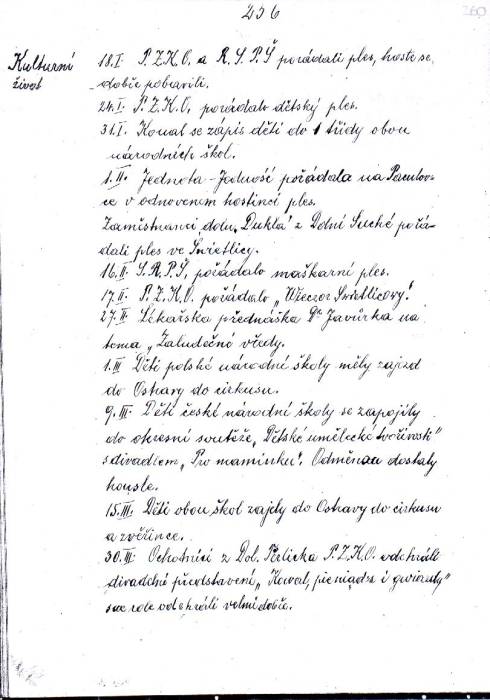 256
260
Kulturní
život
18.I. P.Z.K.O. a R.S.P.Š pořádali ples, hosté se
dobře pobavili.
24.I. P.Z.K.O. pořádalo dětský ples.
31.I. Konal se zápis dětí do 1 třídy obou
národních škol.
1.II. Jednota-Jedność pořádala na Pacalov-
ce v odnoveném hostinci ples.
Zaměstnanci dolu „Dukla" z Dolní Suché pořá-
dali ples ve Świetlicy.
16.II. S.R.P.Š. pořádalo maškarní ples.
17.II. P.Z.K.O. pořádalo „Wieczor Świetlicowy".
27.II Lékařska přednáška Dr Javůrka na
tema „Žaludečné vředy.
1.III Děti polské národní školy měly zájezd
do Ostravy do cirkusu.
9.III. Děti české národní školy se zapojily
do okresní soutěže „Dětské umělecké tvořivosti"
s divadlem „Pro maminku". Odměnou dostaly
housle.
15.III. Děti obou škol zajely do Ostravy do cirkusu
a zvěřince.
30.III. Ochotníci z Dol. Těrlicka P.Z.K.O. odehráli
divadelné představení „Kowal, pieniądze i gwiazdy"
své role odehráli velmi dobře.